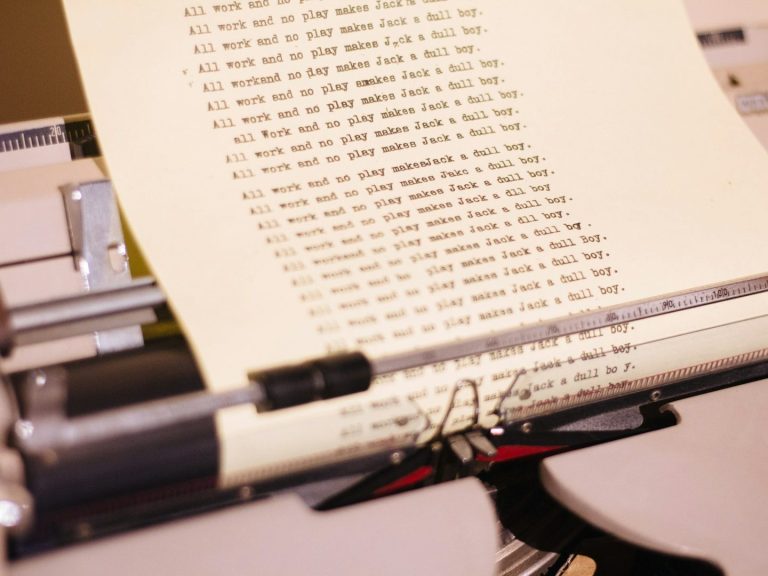 All work and no play makes Jack a dull boy.
All work and no play makes Jack a dull boy.
All work and no play makes J ck a dull boy.
All work and no play makes Jack a dull boy.
All workand no play makes Jack a dull boy.
All work and no play amakes Jack a dull boy.
All work and no play makes Jack a dull boy.
all Work and no play makes Jack a dull boy.
All work and no play makes Jack a dull boy.
All work and no play makes Jack a dull boy.
All work and no play makesJack a dull boy.
All work and no play makes Jakc a dull boy.
All work and no play makes Jack a dull boy.
All work and no play makes Jack a dll boy
All work and no play makes Jack a dull boy.
All workand no play makes Jack a dll boy.
All work and no play makes Jack a dull by .
All work and no play makes Jack a dull Boy.
work and no play makes Jack a dull boy.
work and no play makes Jack a dull boy.
work and no play makes Jack a dull boy.
dull boy.
and no play makes Jack a dull boy.
Jack a dull bo y.
all work
20
80
90
100